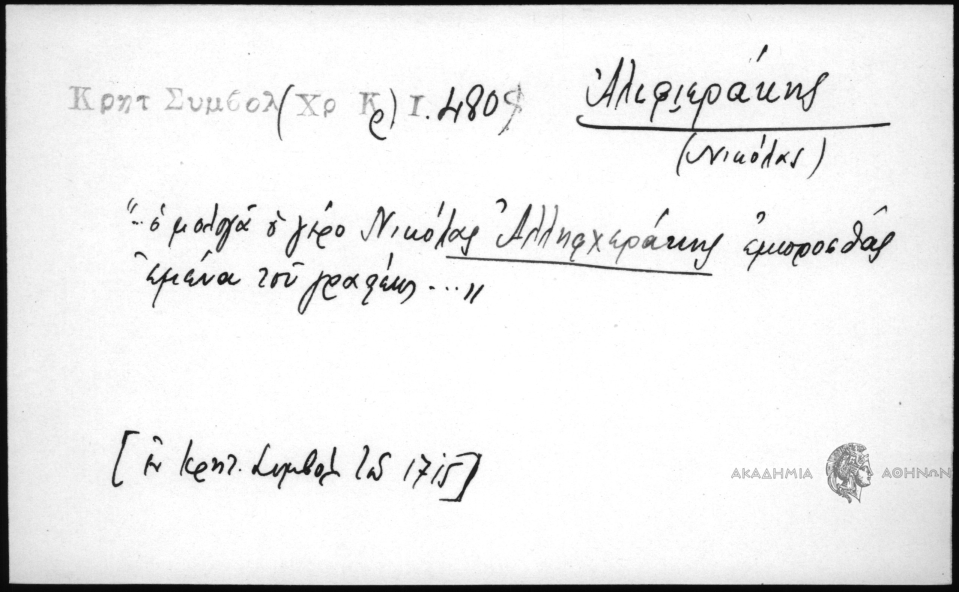 Κρητ Συμβολ (Χρ Κρ) Ι. 480
Ἀλεφιεράκης
(Νικόλας)
"...ὁμολογᾶ ὁ γέρο Νικόλας Ἀλληφχεράκης ἐμπροσθάς
ἐμένα τοῦ γραφέως ..."
[ἐν Κρητ. Συμβολ τοῦ 1715]
ΑΚΑΔΗΜΙΑ ΑΘΗΝΩΝ